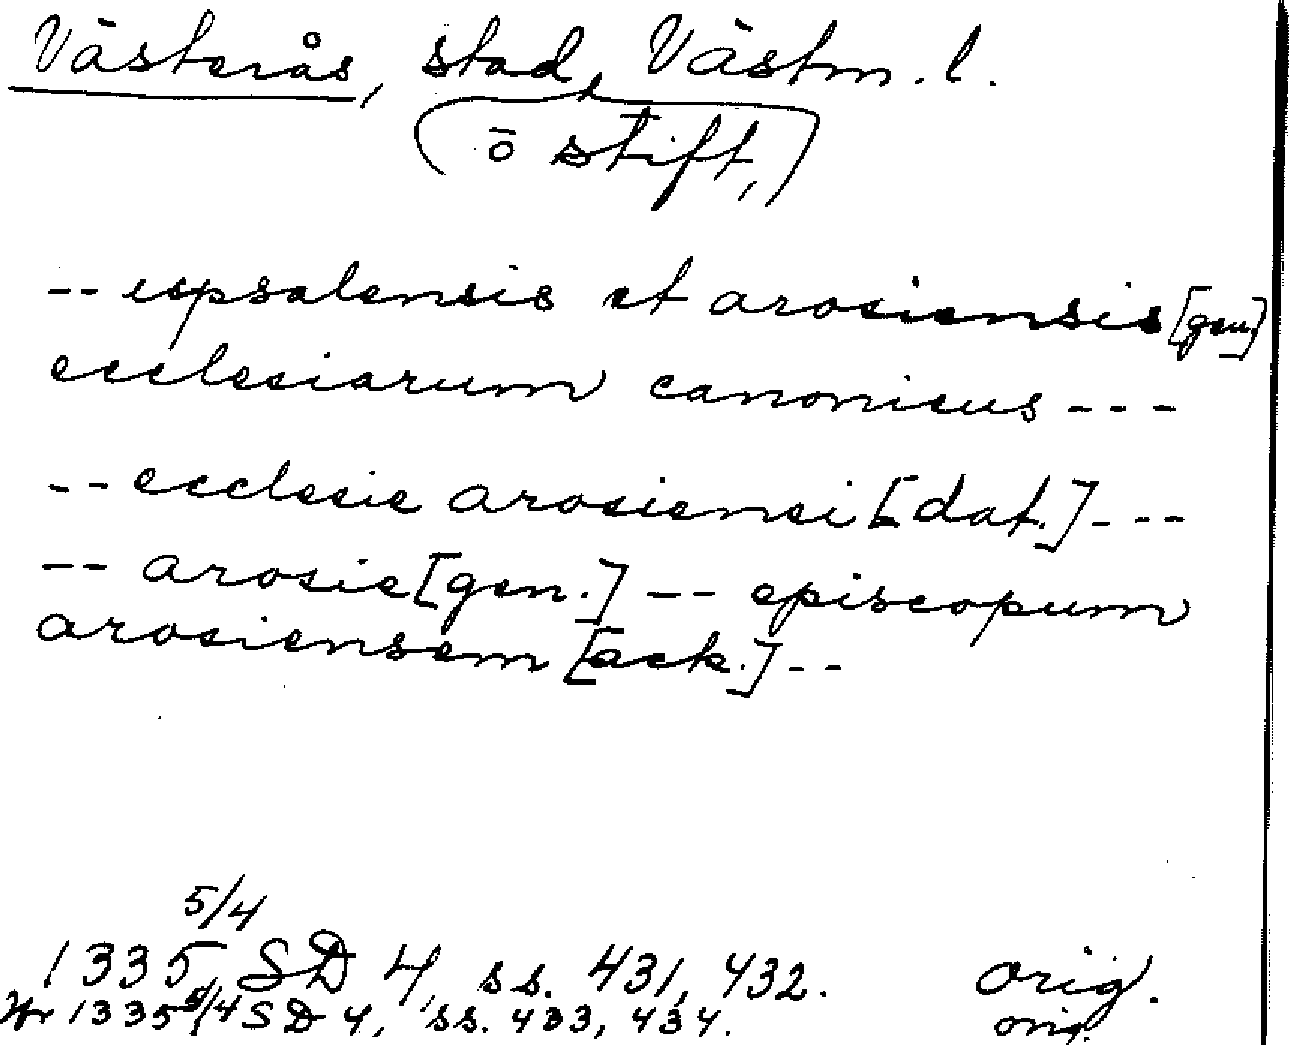 Västerås, stad, Västm. l.
(ō stift,)
-- upsalensis et arosiensis [gen.]
ecclesiarum canonicus ---
-- ecclesie arosiensi [dat.] ---
-- arosie [gen.] -- episcopum
arosiensem [ack.] --
1335 5/4 SD 4, ss. 431, 432. orig.
1335 5/4 SD 4, ss. 433, 434. orig.